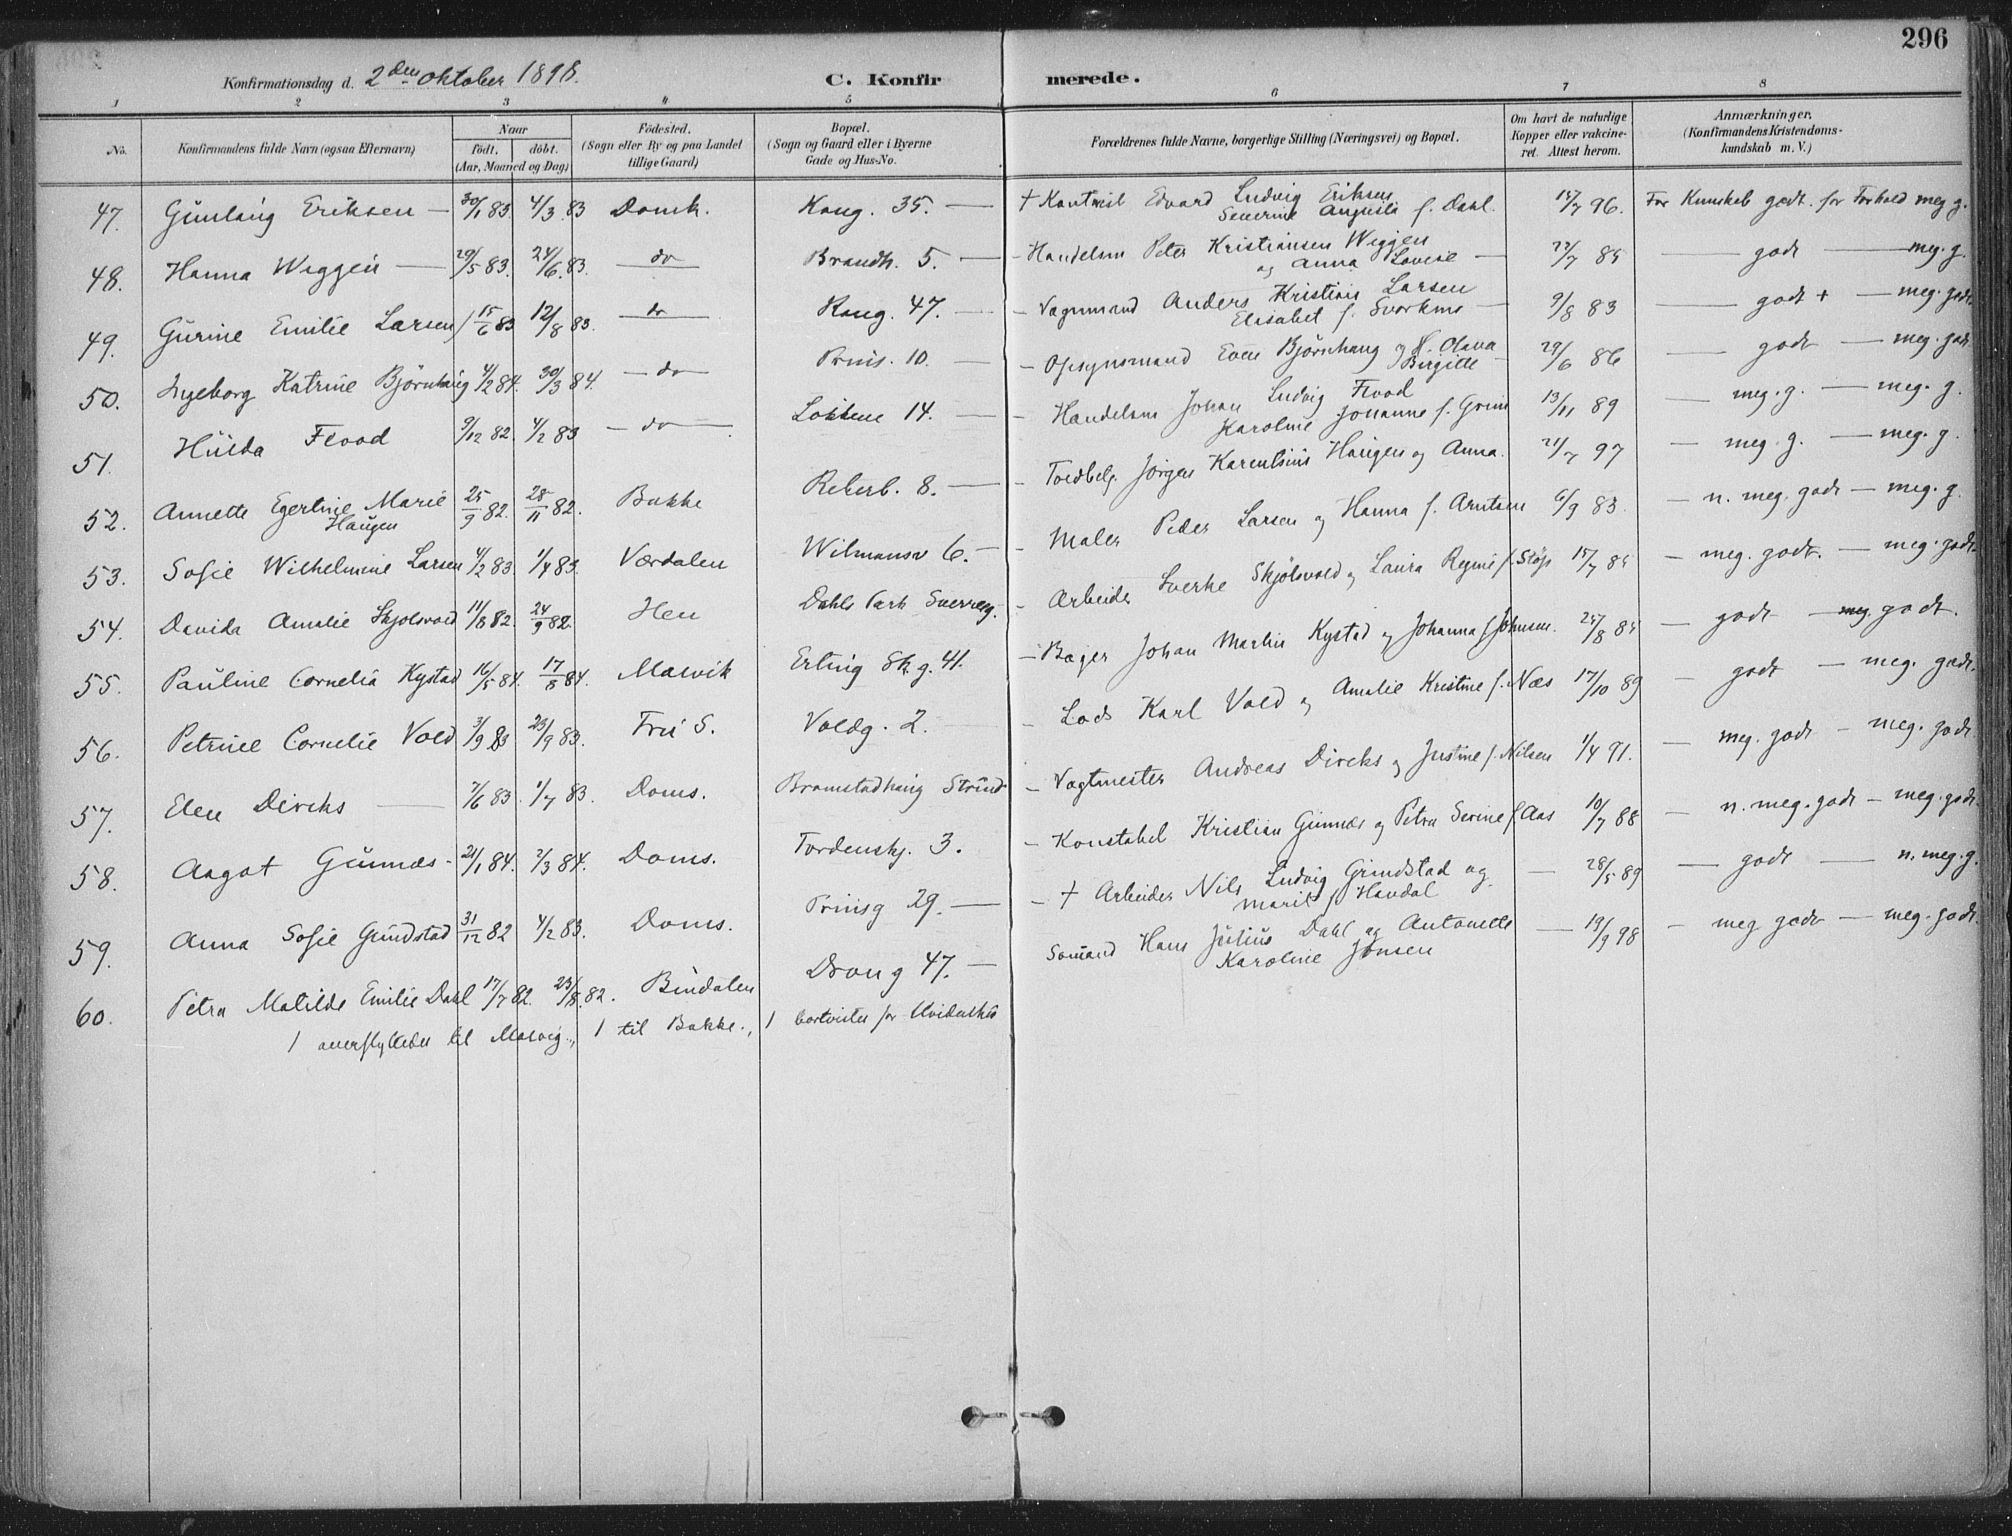 296
Konfirmationsdag d. 2den Oktober 1898. C. Konfirmerede.
1 2 3 4 5 6 7 8
No. Konfirmandens fulde Navn (ogsaa Efternavn) Naar født, døbt. (Aar, Maaned og Dag) Fødested. (Sogn eller By og paa Landet tillige Gaard) Bopæl. (Sogn og Gaard eller i Byerne Gade og Hus-No. Forældrenes fulde Navne, borgerlige Stilling (Næringsvei) og Bopæl. Om havt de naturlige Kopper eller vakcineret. Attest herom. Anmærkninger. (Konfirmandens Kristendomskundskab m. V.)
47. Gunlaug Eriksen — 30/1 83. 4/3 83 Domk. Kong. 35. — + Edvard Ludvig Eriksen Severine Augusta f. Dahl. 15/7 96. For Kunskab godt. for Forhold meg g.
48. Hanna Weggen — 29/5 83. 24/6 83. do Brandh. 5. — - Handelsm Peter Kristiansen Weggen og Anna Lovise — 22/7 85 — godt — meg. g.
49. Gurine Emilie Larsen 15/6 83 12/8 83. do Kong. 47. — - Vognmand Anders Kristian Larsen Elisabet f. Svorkmo — 9/8 83 — godt + — meg. godt
50. Ingeborg Katrine Bjørnhaug 4/2 84. 30/3 84. — do Prins. 10. — - Opsynsmand Even Bjørnhaug og H. Olava Birgitte — 29/6 86 — godt — meg. godt
51. Hulda Flood 9/12 82. 4/2 83 — do — Løkkene 14. — - Handelsm Johan Ludvig Flood Karoline Johanne f. Grim 13/11 89 — meg. g. — meg. g.
52. Annette Egertine Marie Haugen 25/9 82. 28/11 82. Bakke Reberb. 8. — - Toldbetj. Jørgen Karentsius Haugen og Anna. 21/7 97 — meg. g. — meg. g.
53. Sofie Wilhelmine Larsen 4/2 83. 1/4 83. Værdalen Wilmansv 6. — - Maler Peder Larsen og Hanna f. Arntsen 6/9 83. — n. meg. godt — meg. g.
54. Davida Amalie Skjølsvold 11/8 82. 24/9 82. Hen Dahls Park Sverresg. - Arbeider Sverke Skjølsvold og Laura Regine f. 15/7 85 — meg. godt. — meg. godt.
55. Pauline Cornelia Kystad 16/5 84. 17/8 84. Malvik Erling Sk. g. 41. — Bager Johan Martin Kystad og Johanna f. Johnsen. 25/8 85 — godt — meg. godt.
56. Petrine Cornelie Vold 3/9 83 23/9 83. Frü S. Voldg. 2. — - Lods Karl Vold og Amalie Kristine f. Næs 17/10 89 — godt — meg. godt.
57. Elen Dircks — 7/6 83. 1/7 83. Doms. Bromstadhaug Strind - Vagtmester Andreas Dircks og Justine f. Nilsen 1/4 91. — meg. godt — meg. godt.
58. Aagot Gunnæs - 21/1 84. 2/3 84. Doms. Tordenskj. 3. - Konstabel Kristian Gunnæs og Petra Serine f. Aas 10/7 88 — n. meg. godt — meg. godt.
59. Anna Sofie Grindstad 31/12 82 4/2 83. Doms. Prinsg 29. — - + Arbeider Nils Ludvig Grindstad og Marit f. Havdal — 28/5 89 — godt — n. meg. g.
60. Petra Matilde Emilie Dahl 17/7 82. 23/8. 82. Bindalen Drong 47. — Sømand Hans Julius Dahl og Antonette Karoline Jonsen — 19/9 98 — meg godt — meg. godt.
1 overflyttedes til Malvig., 1 til Bakke., 1 bortvistes for Uvidenhed